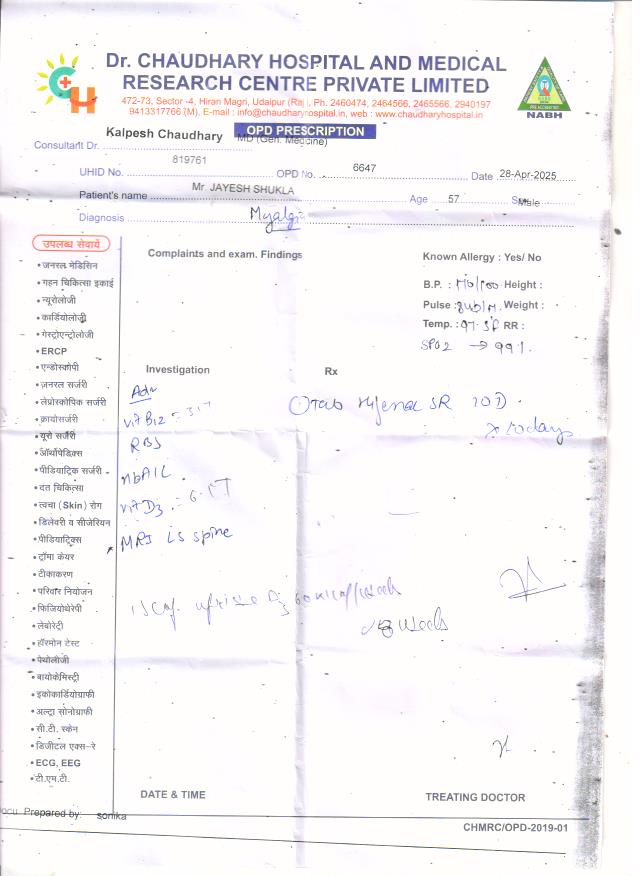 Dr. CHAUDHARY HOSPITAL AND MEDICAL
RESEARCH CENTRE PRIVATE LIMITED
472-73, Sector -4, Hiran Magri, Udaipur (Raj.), Ph. 2460474, 2464566, 2465566, 2940197
9413317766 (M), E-mail : info@chaudharyhospital.in, web : www.chaudharyhospital.in
NABH
OPD PRESCRIPTION
Consultant Dr. Kalpesh Chaudhary MD (Gen. Medicine)
UHID No. 819761 OPD No. 6647 Date 28-Apr-2025
Patient's name Mr. JAYESH SHUKLA Age 57 Male
Diagnosis Myalgia
उपलब्ध सेवायें
• जनरल मेडिसिन
• गहन चिकित्सा इकाई
• न्यूरोलोजी
• कार्डियोलोजी
• गेस्ट्रोएन्ट्रोलोजी
• ERCP
• एन्डोस्कोपी
• जनरल सर्जरी
• लेप्रोस्कोपिक सर्जरी
• क्रायोसर्जरी
• यूरो सर्जरी
• ऑर्थोपेडिक्स
• पीडियाट्रिक सर्जरी
• दन्त चिकित्सा
• त्वचा (Skin) रोग
• डिलेवरी व सीजेरियन
• पीडियाट्रिक्स
• ट्रॉमा केयर
• टीकाकरण
• परिवार नियोजन
• फिजियोथेरेपी
• लेबोरेट्री
• हॉरमोन टेस्ट
• पेथोलोजी
• बायोकेमिस्ट्री
• इकोकार्डियोग्राफी
• अल्ट्रा सोनोग्राफी
• सी.टी. स्केन
• डिजीटल एक्स-रे
• ECG, EEG
• टी.एम.टी.
Complaints and exam. Findings
Known Allergy : Yes/ No
B.P. : Height :
Pulse : Weight :
Temp. : RR :
SPO2 → 99%
Investigation Rx
Adv
Vit B12 = 317
RBS
HbA1C
Vit D3
MRI LS spine
Tab SR
x 10 days
D3 60
8 weeks
DATE & TIME TREATING DOCTOR
Prepared by: sonika
CHMRC/OPD-2019-01